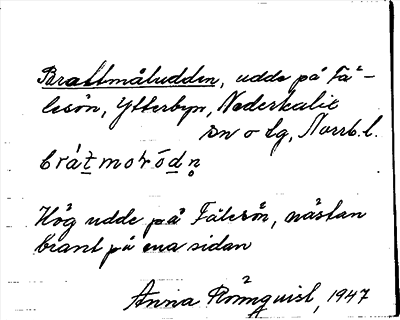 Brattmåludden, udde på Fä-
lesön, Ytterbyn, Nederkalix
sn o tg, Norrb.l.
Hög udde på Fälesön, nästan
brant på ena sidan
Anna Römquist, 1947